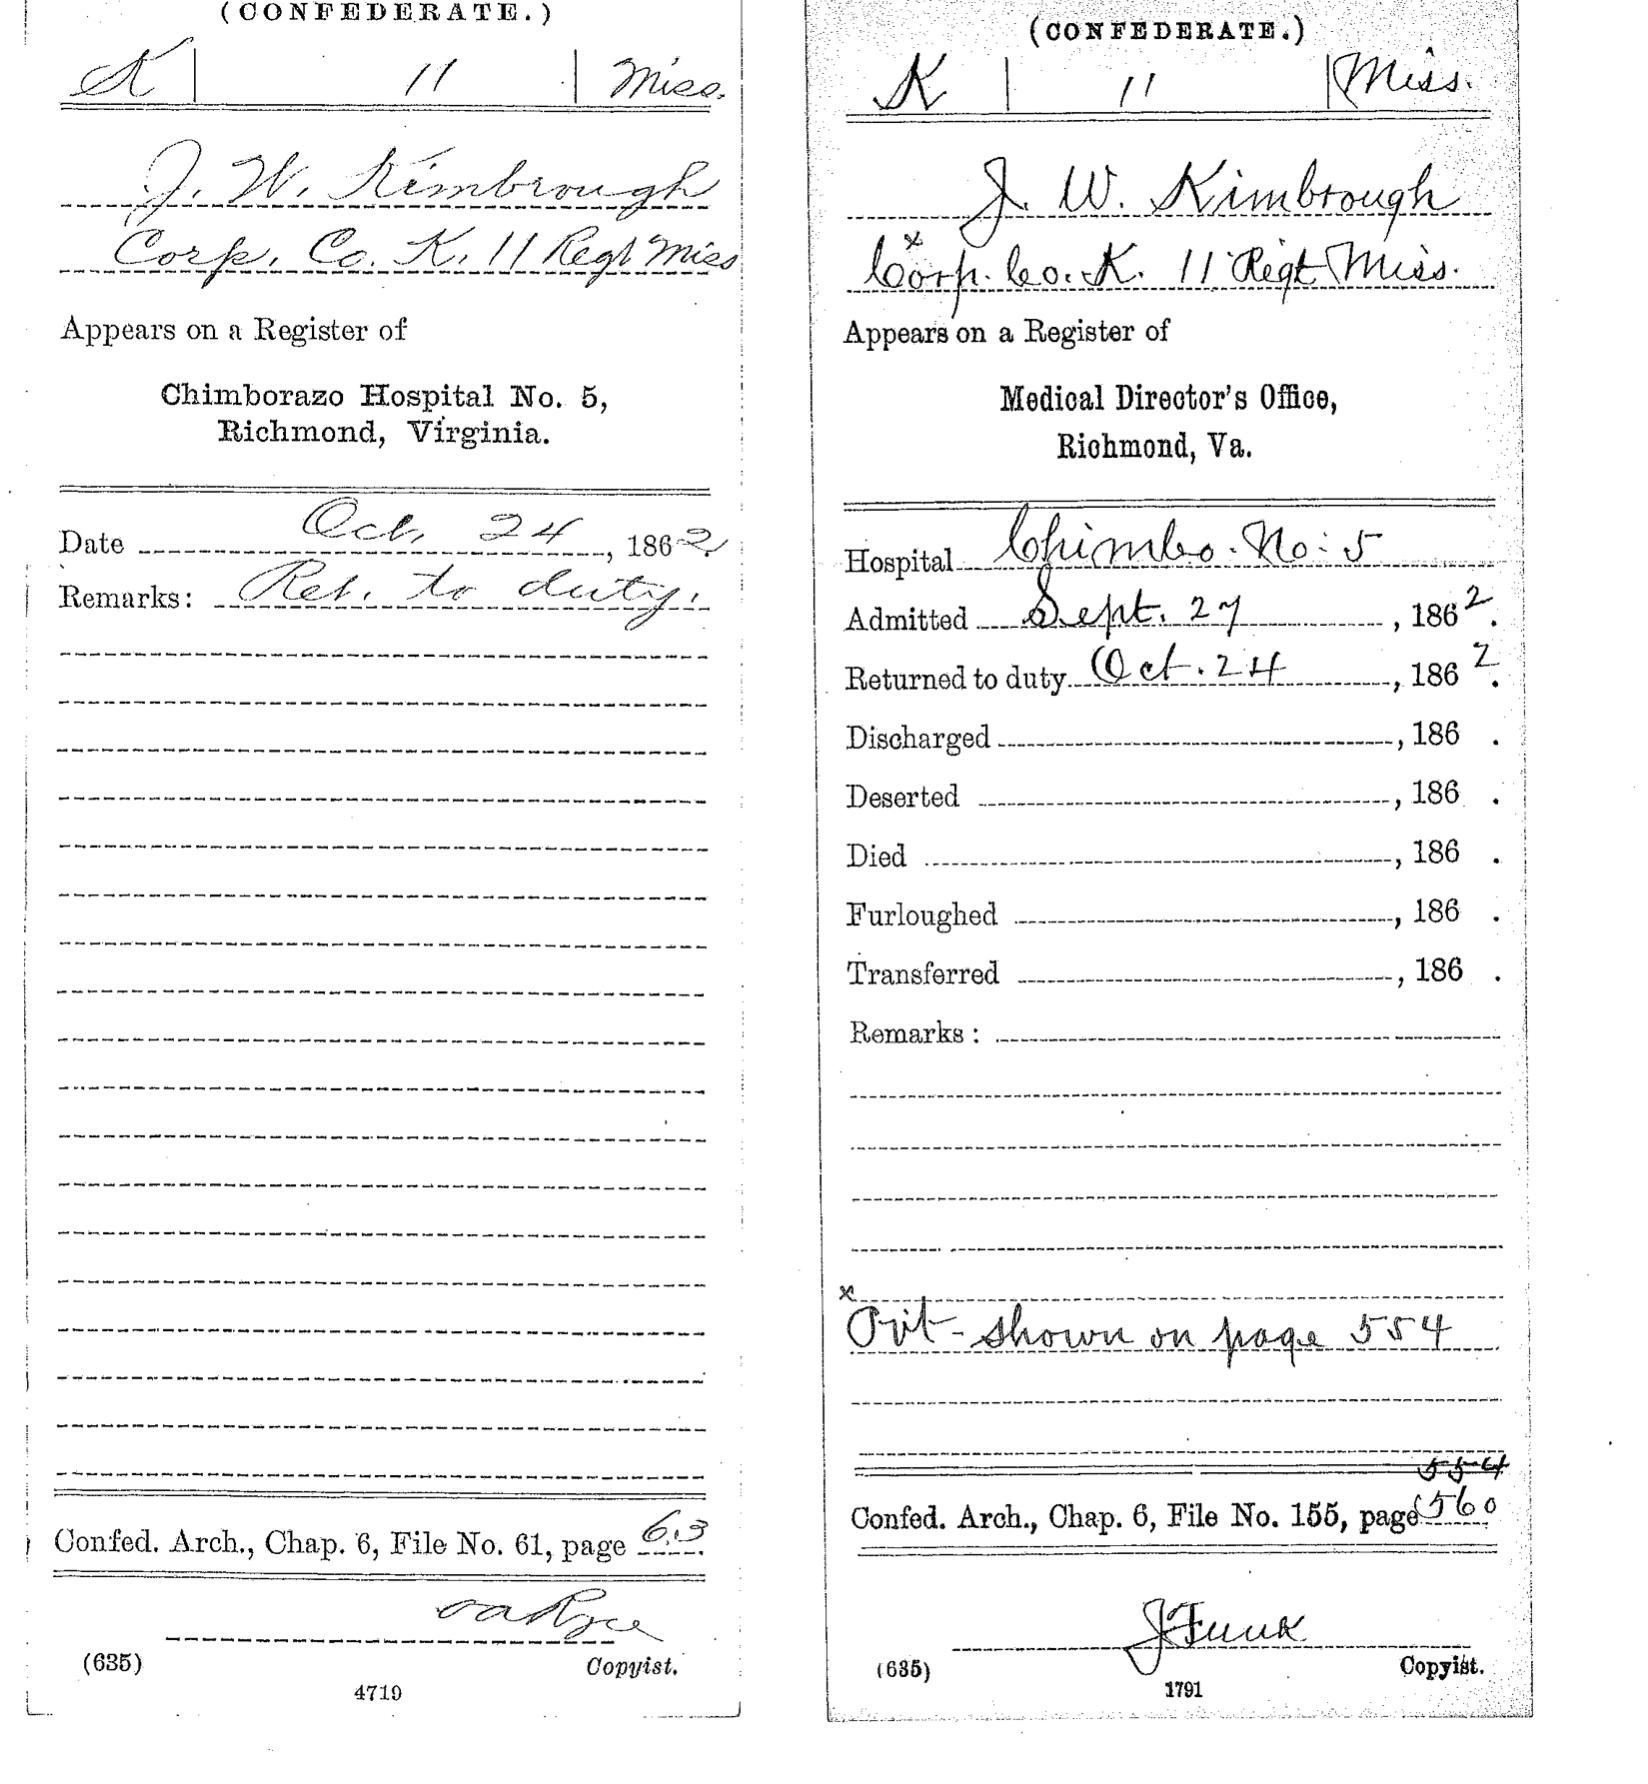 (CONFEDERATE.)
K | 11 | Miss.
J. W. Kimbrough
Corp. Co. K. 11 Regt Miss
Appears on a Register of
Chimborazo Hospital No. 5,
Richmond, Virginia.
Date Oct. 24, 1862.
Remarks: Ret. to duty.
Confed. Arch., Chap. 6, File No. 61, page 63.
(635)
Copyist.
4719
(CONFEDERATE.)
K | 11 | Miss.
J. W. Kimbrough
x
Corp. Co. K. 11 Regt Miss.
Appears on a Register of
Medical Director's Office,
Richmond, Va.
Hospital Chimbo. No: 5
Admitted Sept. 27, 1862.
Returned to duty Oct. 24, 1862.
Discharged , 186 .
Deserted , 186 .
Died , 186 .
Furloughed , 186 .
Transferred , 186 .
Remarks:
x
Pvt - shown on page 554
554
Confed. Arch., Chap. 6, File No. 155, page 560
J Funk
(635)
Copyist.
1791